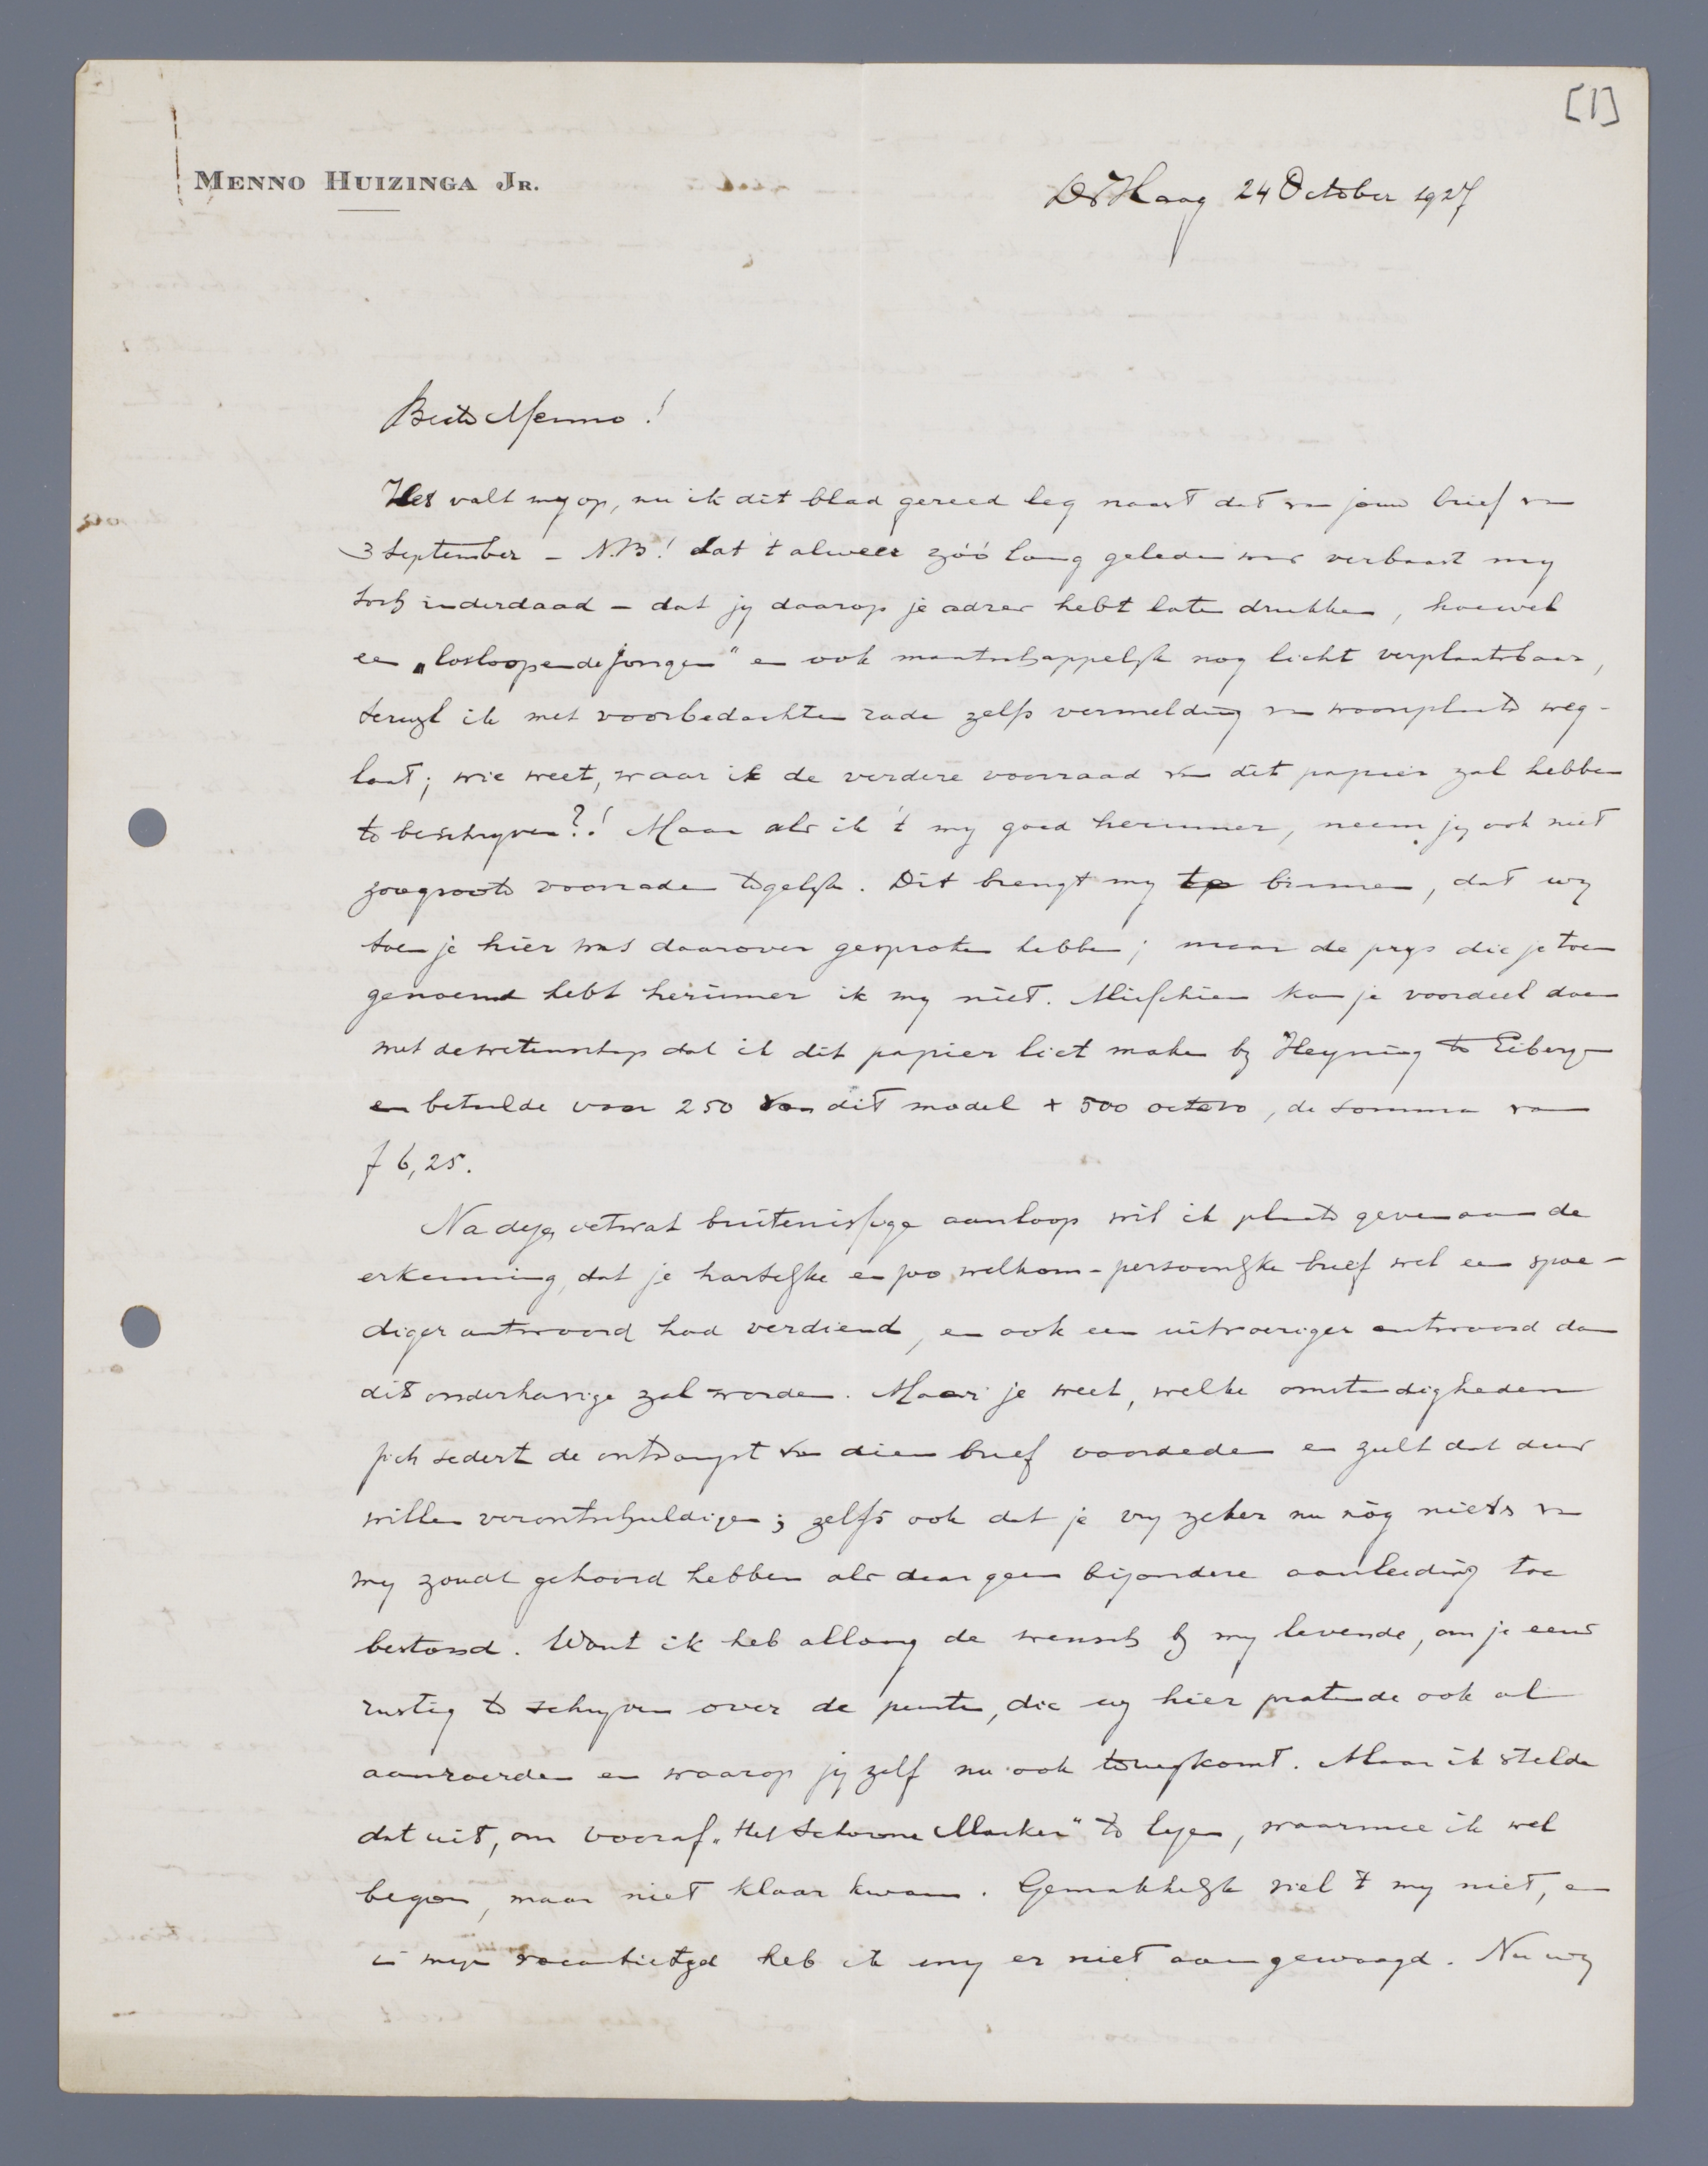 [1]
MENNO HUIZINGA JR.
De Haag 24 October 1927
Beste Menno!
Het valt my op, nu ik dit blad gereed leg naast dat van jouw brief van
3 September – N.B.! dat 't alweer zóó lang geleden was verbaast my
toch inderdaad – dat jy daarop je adres hebt laten drukken, hoewel
een „losloopende jongen" en ook maatschappelyk nog licht verplaatsbaar,
terwyl ik met voorbedachten rade zelfs vermelding van woonplaats weg-
laat; wie weet, waar ik de verdere voorraad van dit papier zal hebben
te beschryven?! Maar als ik 't my goed herinner, neem jy ook niet
zoo groote voorraden tegelyk. Dit brengt my te binnen, dat wy
toen je hier was daarover gesproken hebben; maar de prys die je toen
genoemd hebt herinner ik my niet. Misschien kan je voordeel doen
met de wetenschap dat ik dit papier liet maken by Heyning te Eibergen
en betaalde voor 250 van dit model + 500 octavo, de somma van
f 6,25.
Na deze ietwat buitenissige aanloop wil ik plaats geven aan de
erkenning, dat je hartelyke en zoo welkom-persoonlyke brief wel een spoe-
diger antwoord had verdiend, en ook een uitvoeriger antwoord dan
dit onderhavige zal worden. Maar je weet, welke omstandigheden
zich sedert de ontvangst van dien brief voordeden en zult dat dus
willen verontschuldigen; zelfs ook dat je vry zeker nu nòg niets van
my zoudt gehoord hebben als daar geen byzondere aanleiding toe
bestond. Want ik heb allang de wensch by my levende, om je eens
rustig te schryven over de punten, die wy hier pratende ook al
aanroerden en waarop jy zelf nu ook terugkomt. Maar ik stelde
dat uit, om vooraf „Het Schoone Masker" te lezen, waarmee ik wel
begon, maar niet klaar kwam. Gemakkelyk viel 't my niet, en
in myn vacantietyd heb ik my er niet aan gewaagd. Nu wy